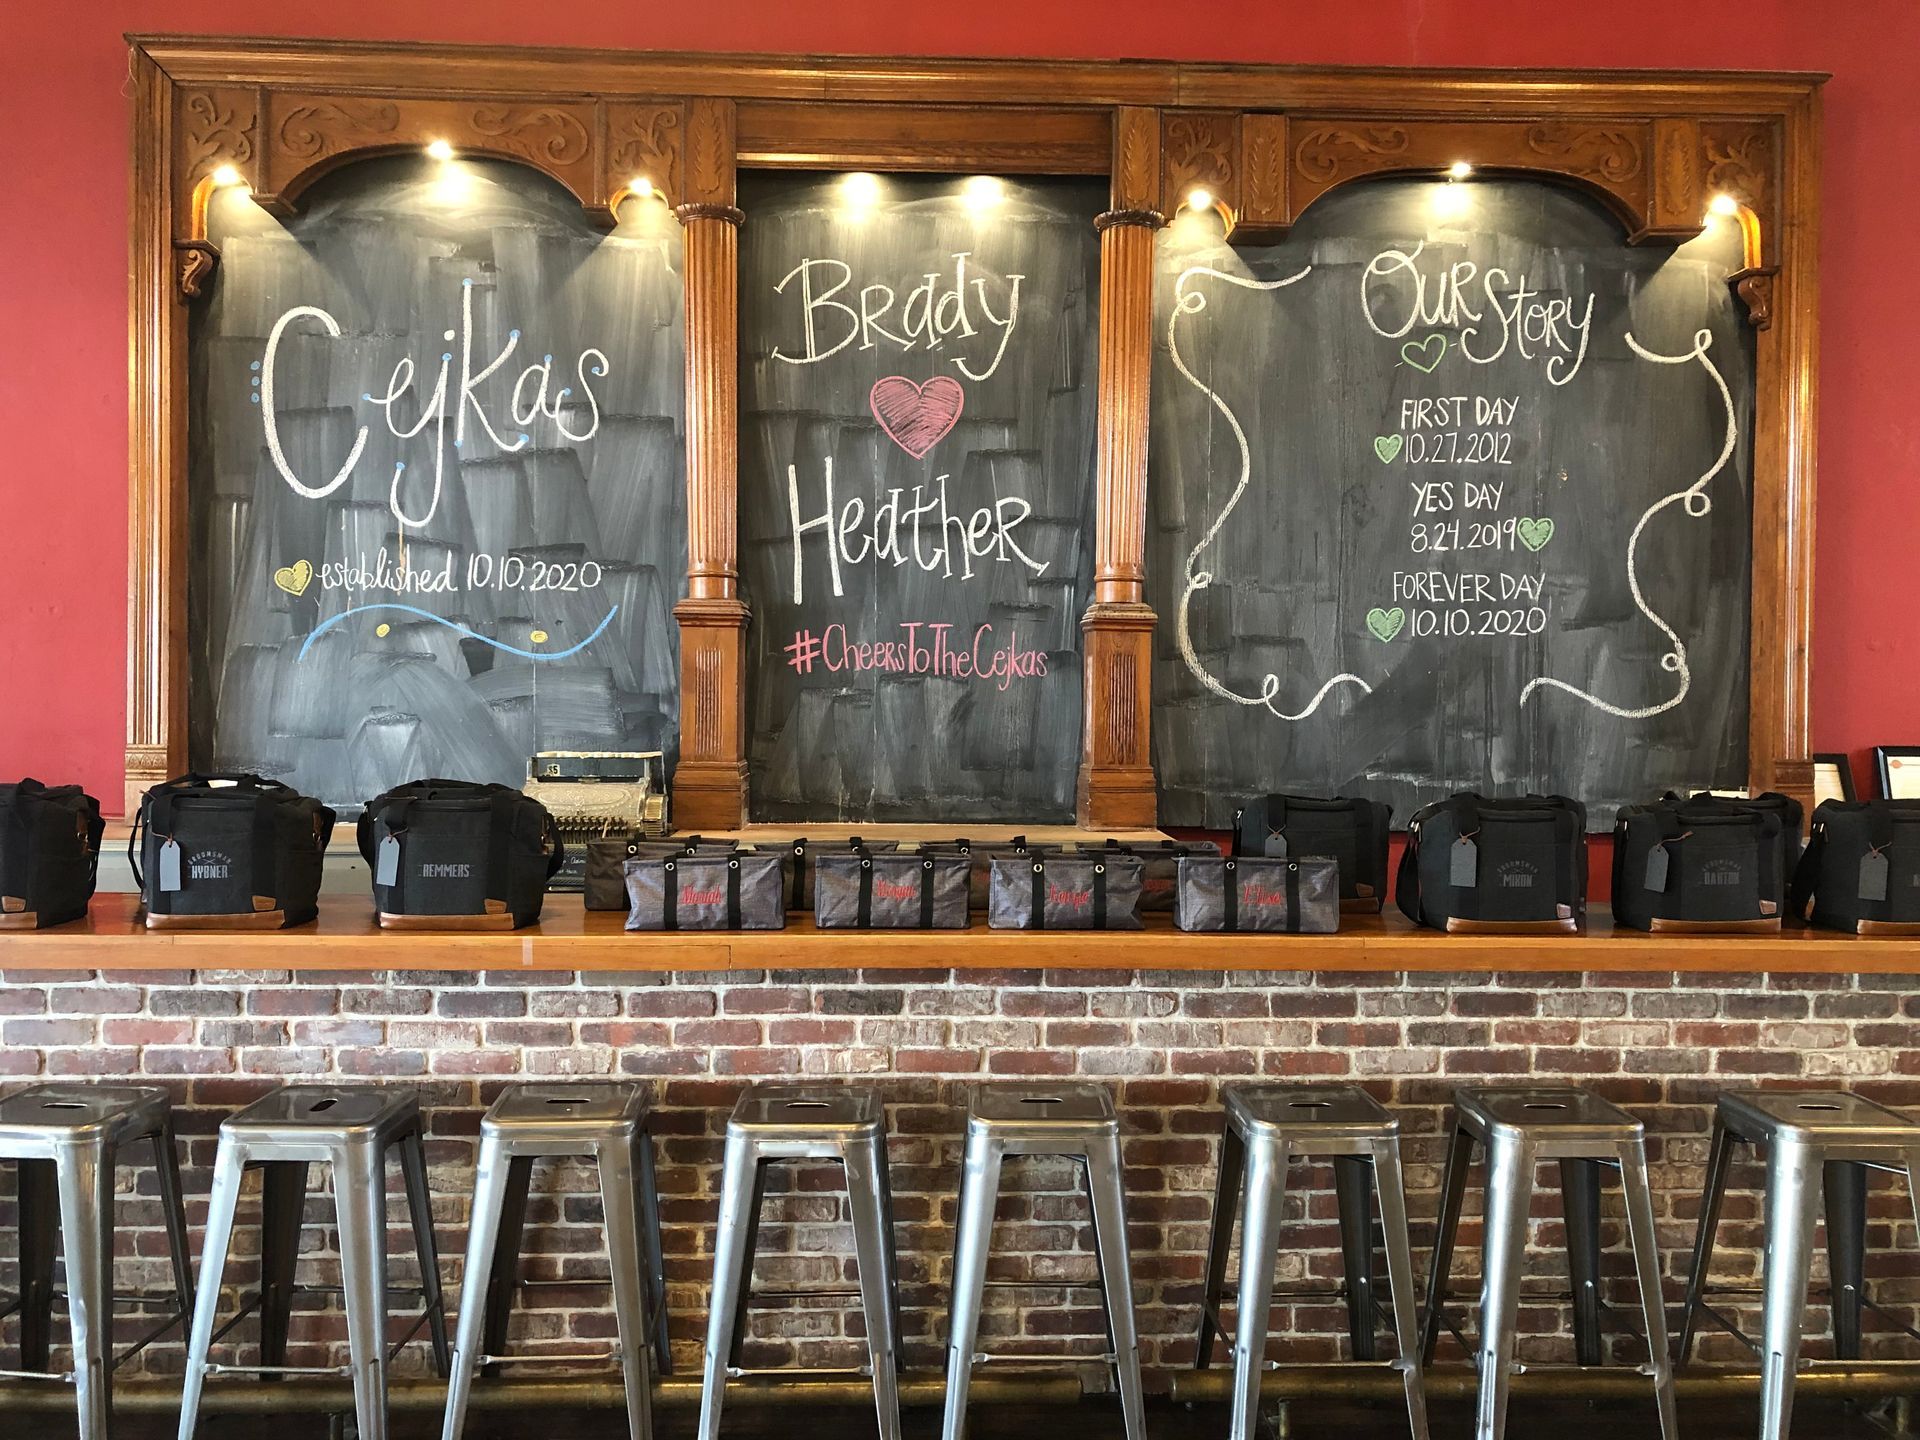 Cejkas
established 10.10.2020
Brady
Heather
#CheersToTheCejkas
Our Story
FIRST DAY
10.27.2012
YES DAY
8.24.2019
FOREVER DAY
10.10.2020
GROOMSMAN
HYBNER
REMMERS
Mariah
GROOMSMAN
MIXON
GROOMSMAN
BARTON